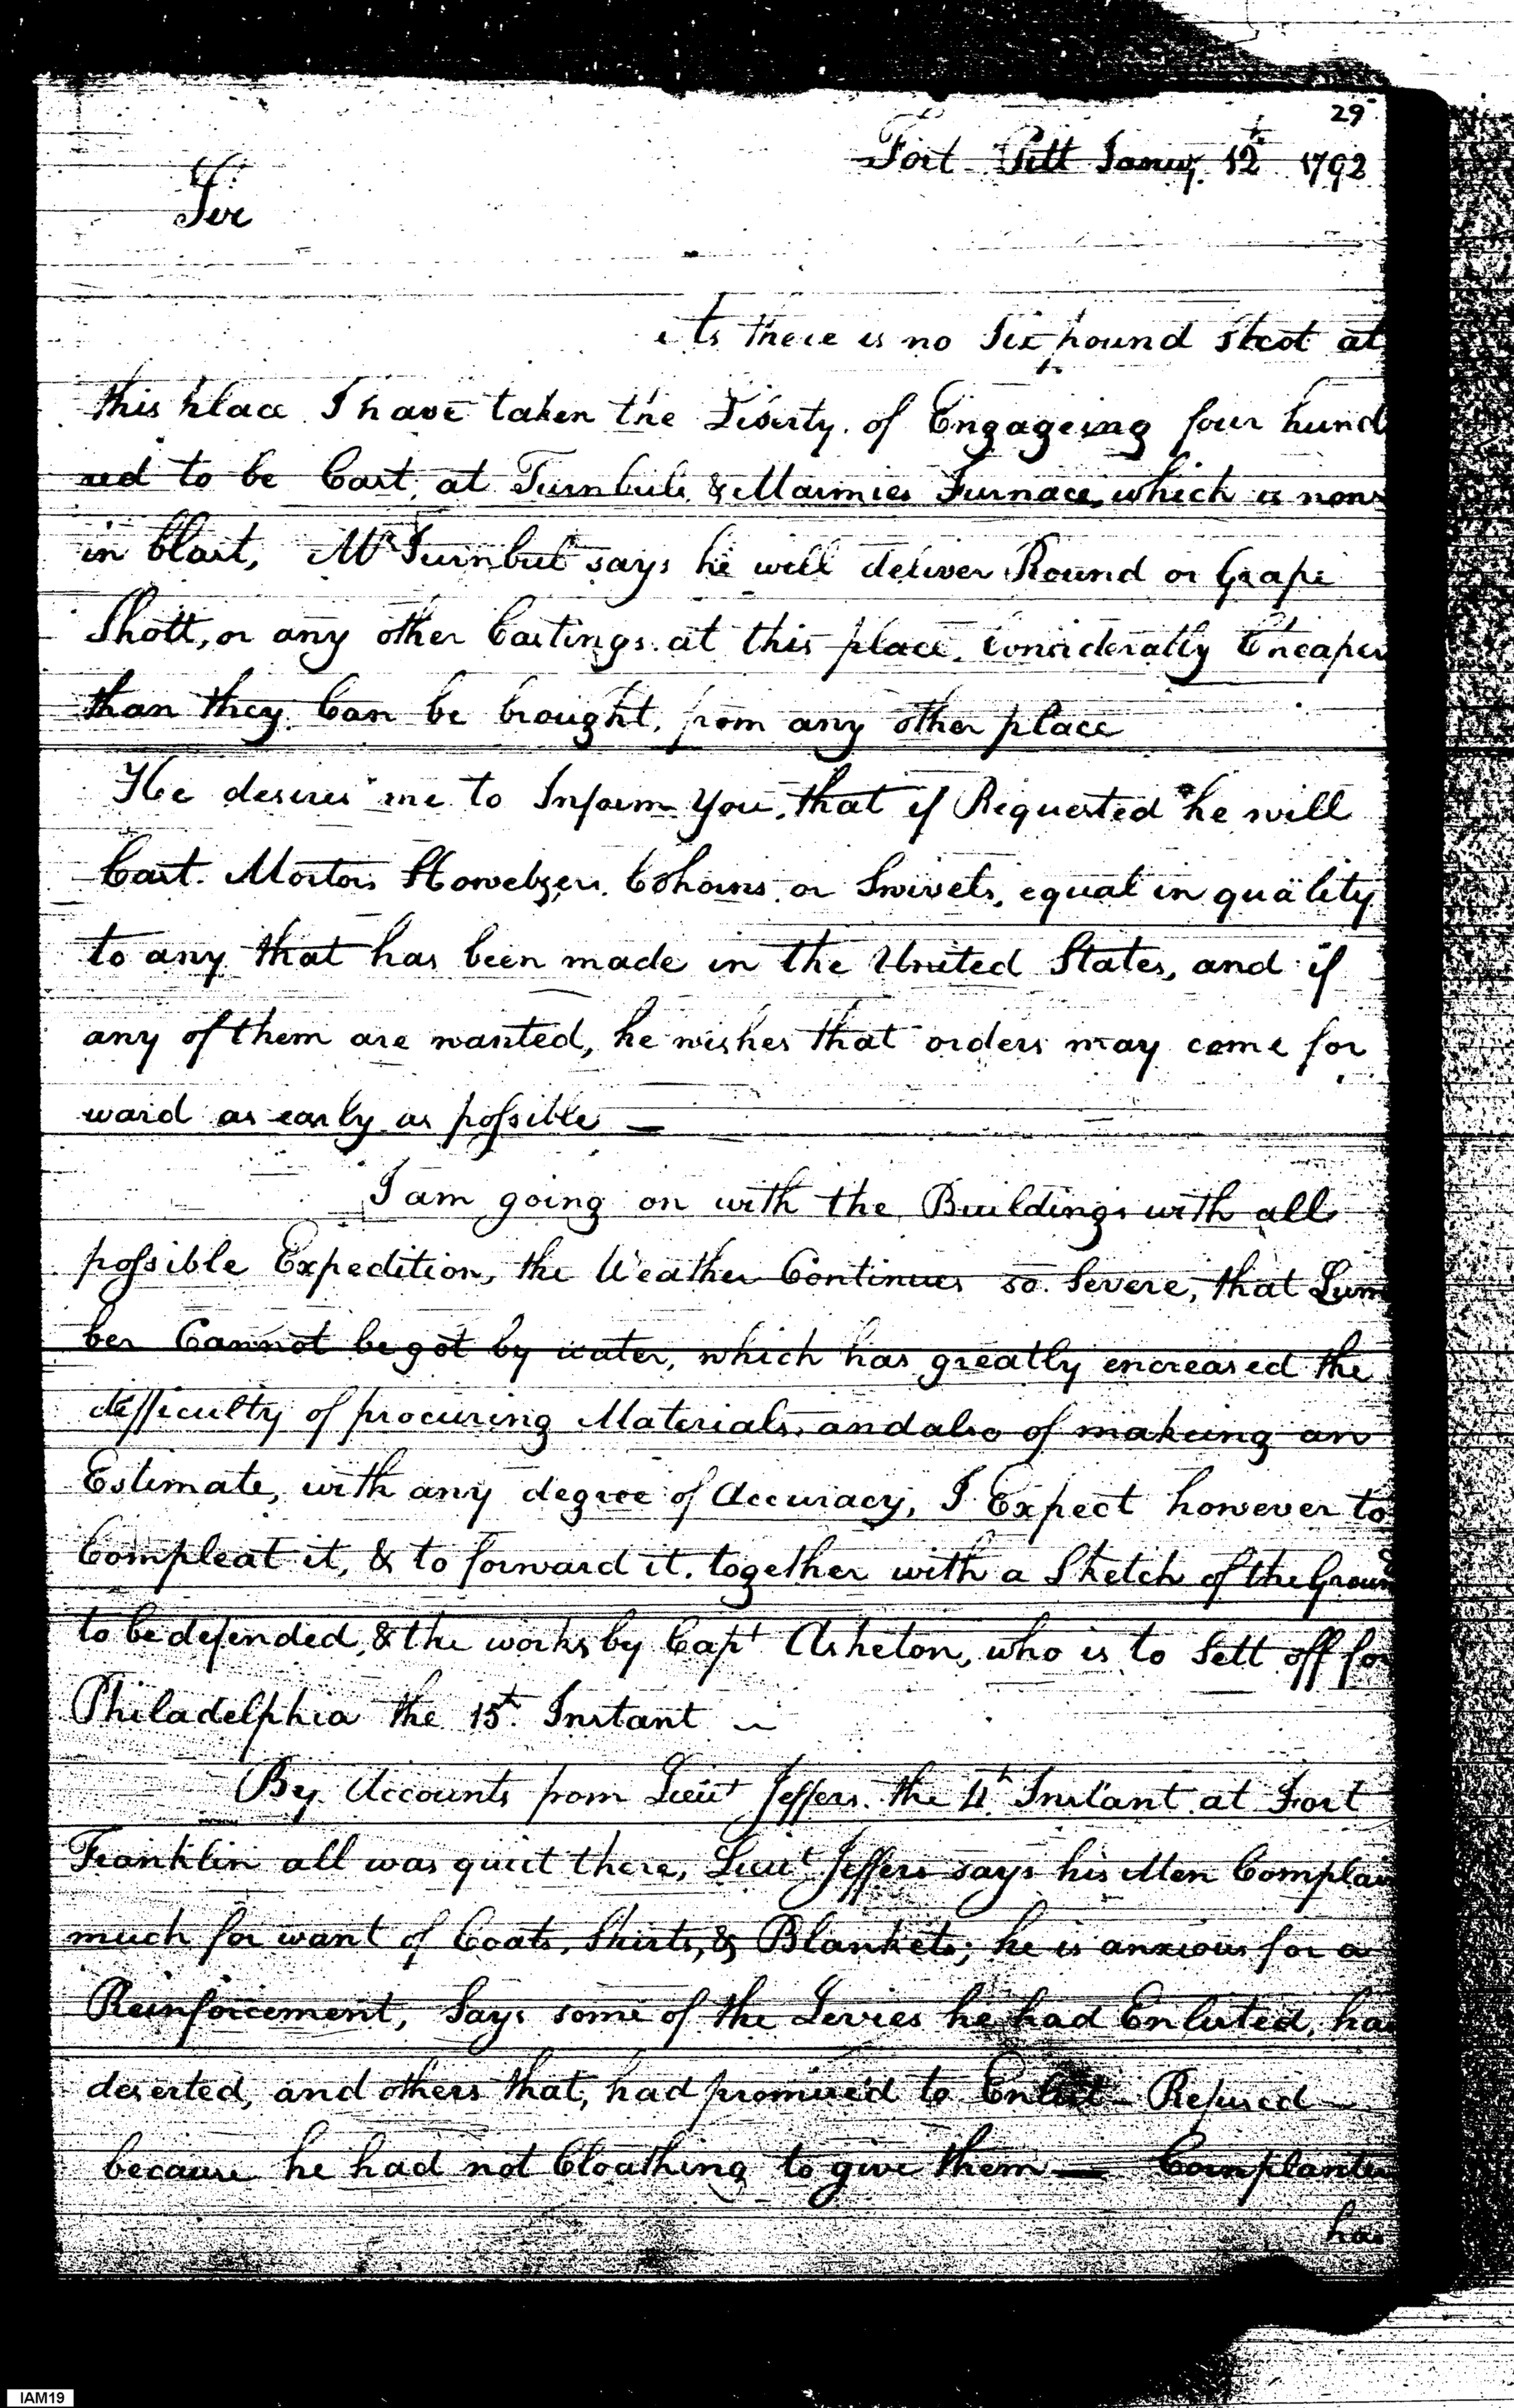 29
Fort Pitt Janry. 12th 1792
Sir
As there is no Six pound Shot at
this place I have taken the Liberty of Engageing four hund
red to be Cast, at Turnbull & Marmies Furnace, which is now
in blast, Mr Turnbull says he will deliver Round or Grape
Shott, or any other Castings at this place considerably Cheaper
than they Can be brought, from any other place
He desires me to Inform You, that if Requested he will
Cast Mortars Howebzers Cohorns or Swivels, equal in quality
to any that has been made in the United States, and if
any of them are wanted, he wishes that orders may come for
ward as early as possible —
I am going on with the Buildings with all
possible Expedition, the Weather Continues so Severe, that Lum
ber Cannot be got by water, which has greatly encreased the
difficulty of procuring Materials, and also of makeing an
Estimate, with any degree of Accuracy, I Expect however to
Compleat it, & to forward it, together with a Sketch of the Ground
to be defended, & the works by Capt Asheton, who is to Sett off for
Philadelphia the 15th Instant —
By Accounts from Lieut Jeffers the 4th Instant at Fort
Franklin all was quiet there, Lieut Jeffers says his Men Complain
much for want of Coats, Shirts, & Blankets; he is anxious for a
Reinforcement, Says some of the Levies he had Enlisted, had
deserted, and others that, had promised to Enlist Refused
because he had not Cloathing to give them — Cornplanter
has
IAM19